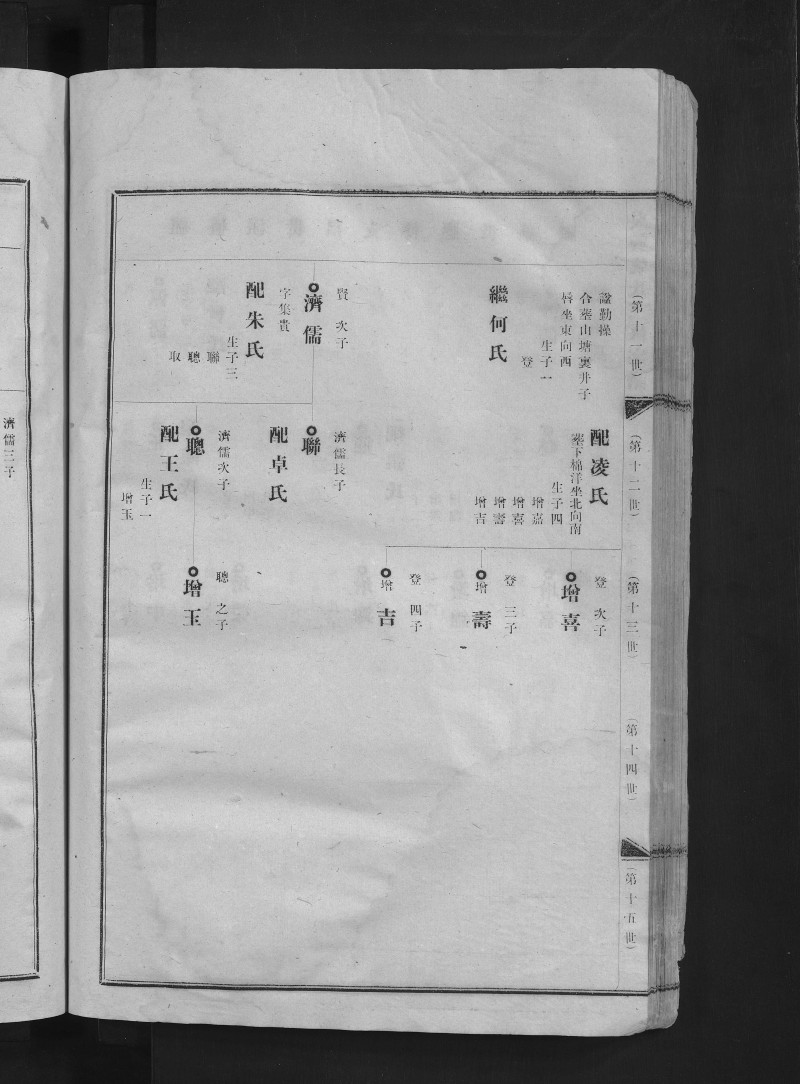 (第十一世)
(第十二世)
(第十三世)
(第十四世)
(第十五世)
諡勤操
合墓山塘裏井子
唇坐東向西
生子一
登
繼何氏
賢次子
濟儒
字集貴
配朱氏
生子三
聯
聰
取
配凌氏
墓下棉洋坐北向南
生子四
增嘉
增喜
增壽
增吉
濟儒長子
聯
配卓氏
濟儒次子
聰
配王氏
生子一
增玉
登次子
增喜
登三子
增壽
登四子
增吉
聰之子
增玉
濟儒三子